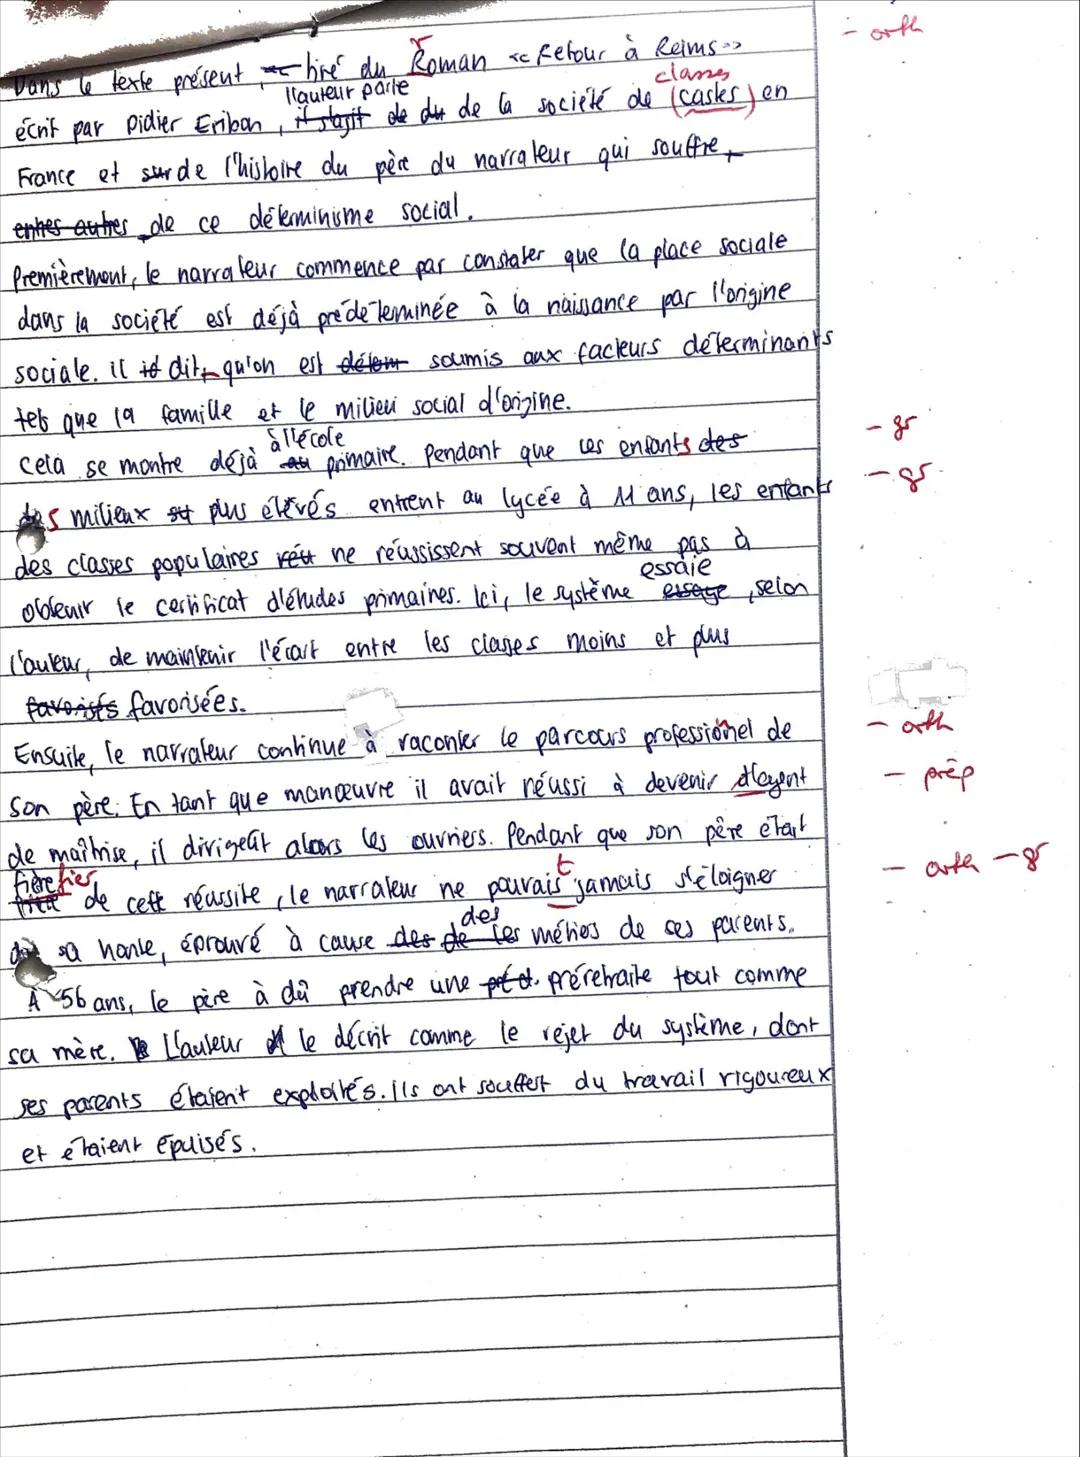 - orth
r
Dans le texte présent, tiré du Roman << Retour à Reims >>
l'auteur parle classes
écrit par Didier Eribon, il s'agit de du de la société de (castes) en
France et sur de l'histoire du père du narrateur qui souffre,
entres autres de ce déterminisme social.
Premièrement, le narrateur commence par constater que la place sociale
dans la société est déjà prédéterminée à la naissance par l'origine
sociale. il id dit, qu'on est déterm soumis aux facteurs déterminants
tels que la famille et le milieu social d'origine.
à l'école - gr
Cela se montre déjà au primaire. Pendant que ces enfants des
- gr
des milieux st plus élevés entrent au lycée à 11 ans, les enfants
des classes populaires réu ne réussissent souvent même pas à
essaie
obtenir le certificat d'études primaires. Ici, le système essaye, selon
l'auteur, de maintenir l'écart entre les classes moins et plus
favorisés favorisées.
- orth
Ensuite, le narrateur continue à raconter le parcours professionnel de
- prép
son père. En tant que manœuvre il avait réussi à devenir d'agent
de maîtrise, il dirigeait alors les ouvriers. Pendant que son père était
fière fier t - orth - gr
de cette réussite, le narrateur ne pouvais jamais s'éloigner
des
de sa honte, éprouvé à cause des de les métiers de ses parents.
À 56 ans, le père à dû prendre une prét. préretraite tout comme
sa mère. L'auteur le décrit comme le rejet du système, dont
ses parents étaient exploités. Ils ont souffert du travail rigoureux
et étaient épuisés.